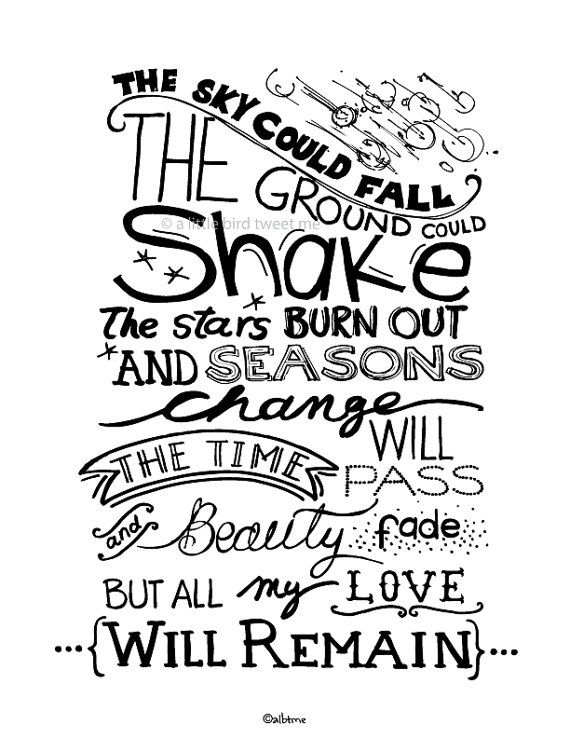 THE SKY COULD FALL
THE GROUND COULD
© a little bird tweet me
Shake
The stars BURN OUT
AND SEASONS
change
THE TIME WILL
PASS
and Beauty fade
BUT ALL my LOVE
...{WILL REMAIN}...
©albtme